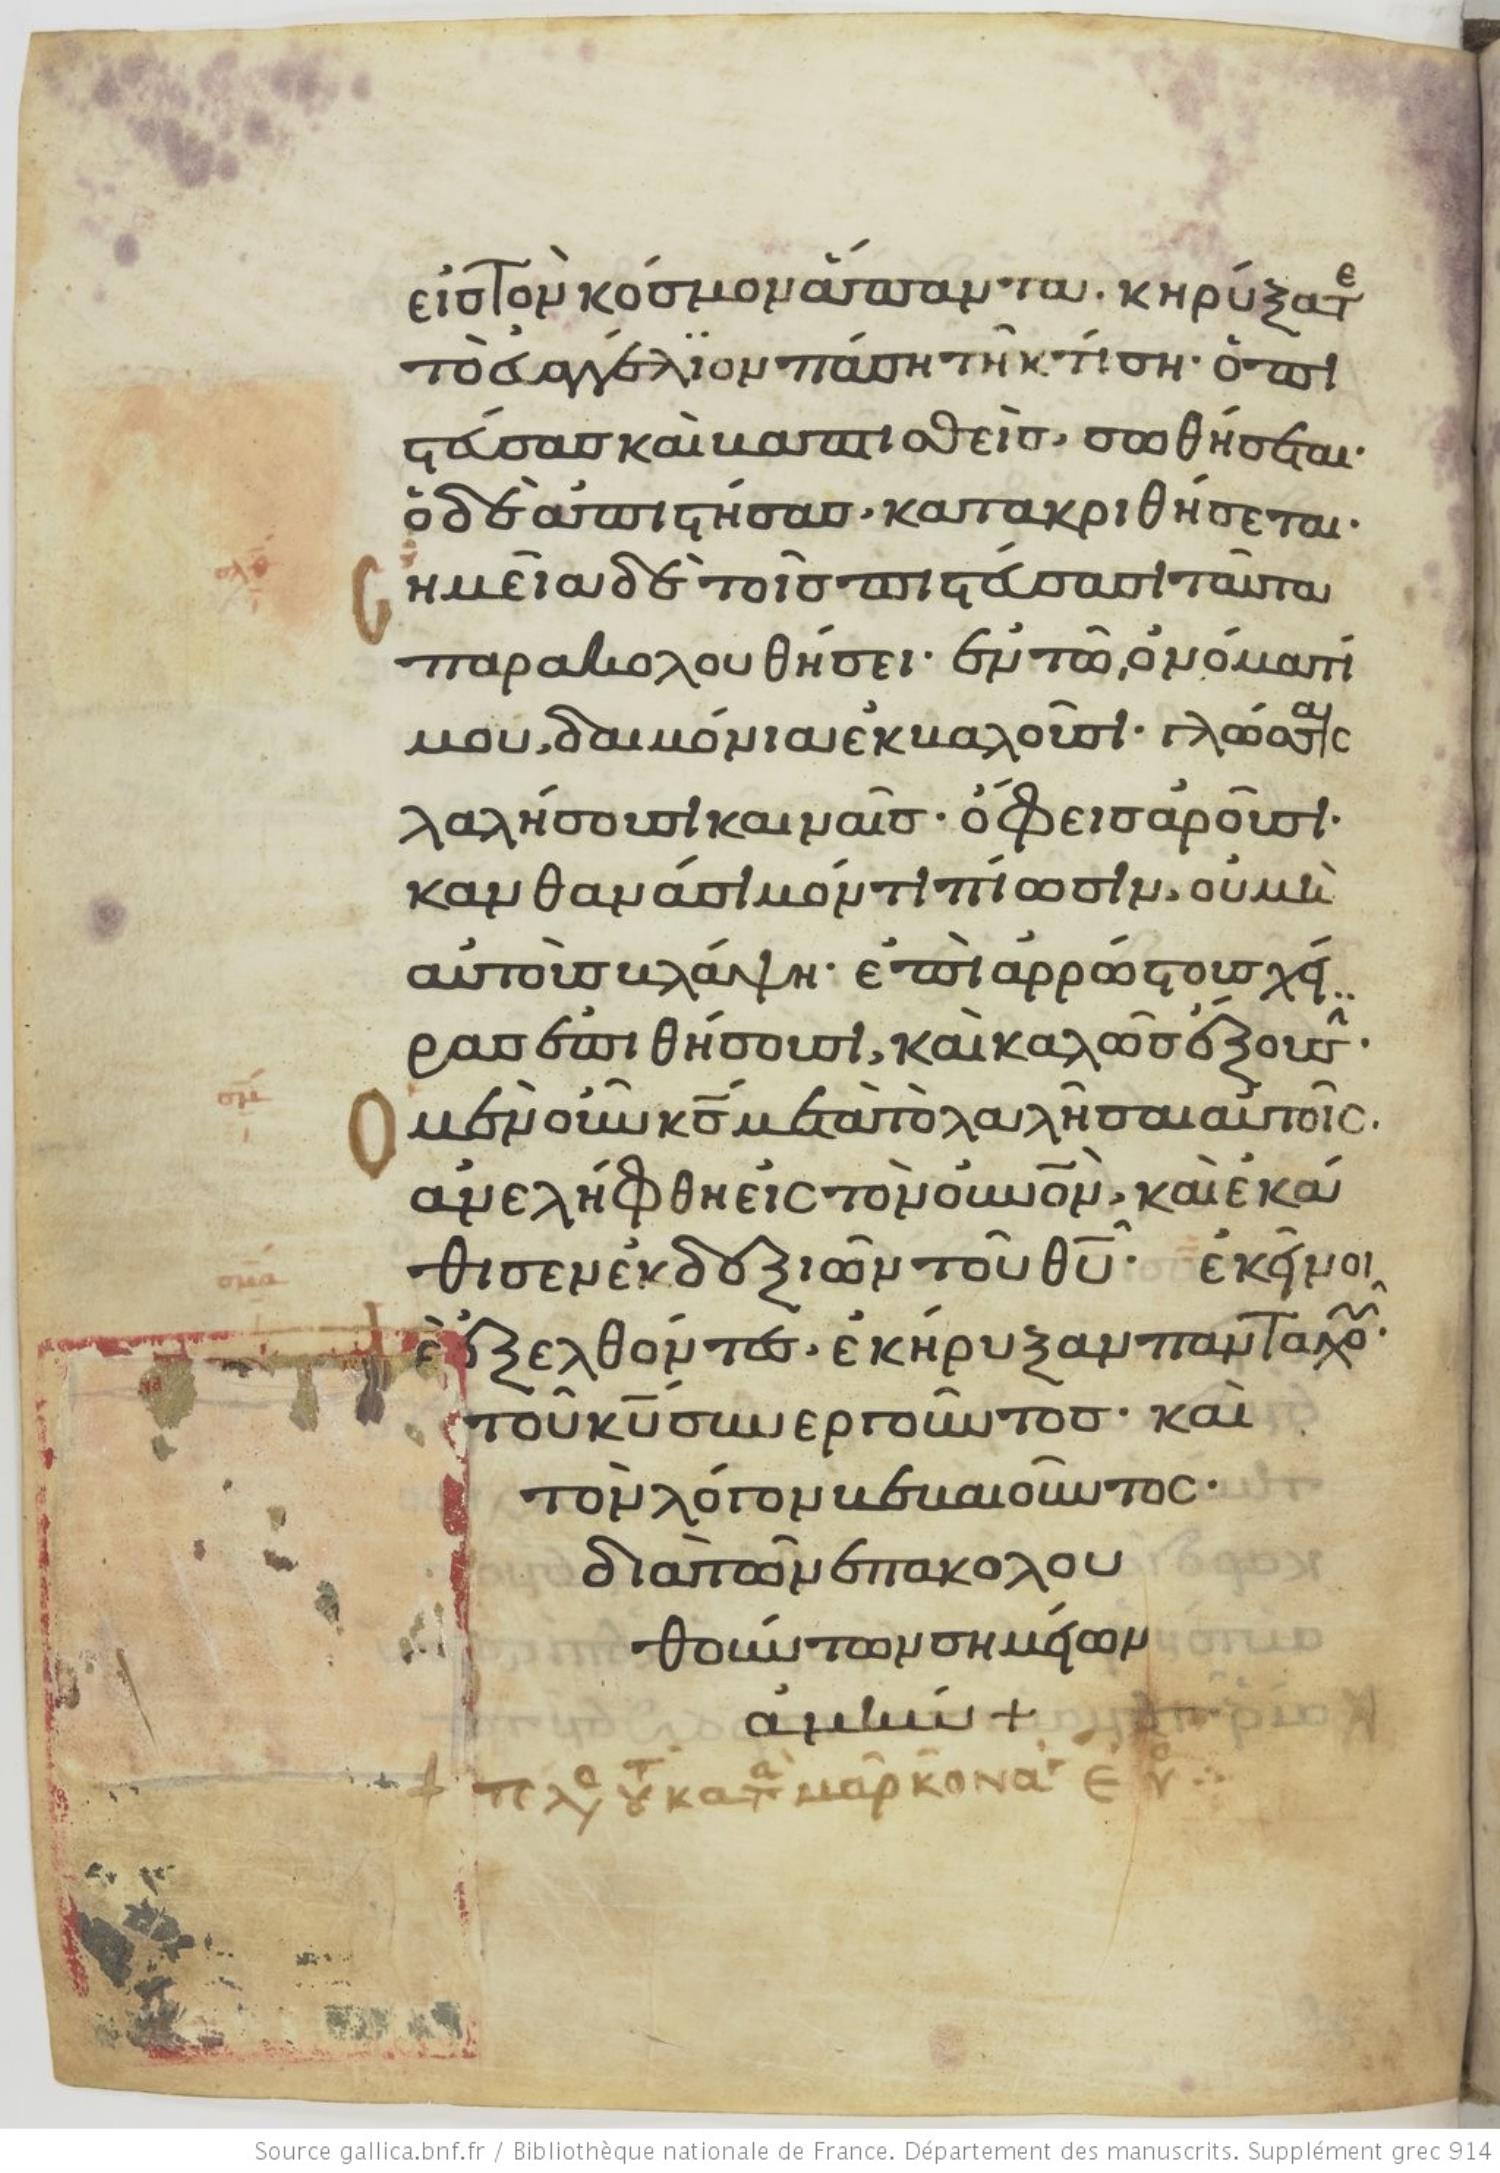 εἰς τὸν κόσμον ἅπαντα. κηρύξατε
τὸ εὐαγγέλϊον πάση τῆ κτίση· ὁ πι
στεύσας καὶ βαπτισθεὶς, σωθήσεται·
ὁ δὲ ἀπιστήσας, κατακριθήσεται·
Σημεῖα δὲ τοῖς πιστεύσασι ταῦτα
παρακολουθήσει· ἐν τῶ, ὀνόματί
μου, δαιμόνια ἐκβαλοῦσι· γλώσσαις
λαλήσουσι καιναῖς· ὄφεις ἀροῦσι·
καν θανάσιμόν τι πίωσιν, οὐ μὴ
αὐτοὺς βλάψη· ἐπὶ ἀρρώστους χεί
ρας ἐπιθήσουσι, καὶ καλῶς ἕξουσϊ·
Ὁ μὲν οὖν κς̅ μετὰ τὸ λαλῆσαι αὐτοῖς.
ἀνελήφθη εἰς τὸν οὐνο̅ν, καὶ ἐκά
θισεν ἐκ δεξιῶν τοῦ θυ̅· ἐκεῖνοι
δὲ ἐξελθόντες. ἐκήρυξαν πανταχοῦ·
τοῦ κυ̅ συνεργοῦντος· καὶ
τὸν λόγον βεβαιοῦντος·
διὰ τῶν ἐπακολου
θούντων σημείων
ἀμήν +
ὅλου
με̅
Source gallica.bnf.fr / Bibliothèque nationale de France. Département des manuscrits. Supplément grec 914